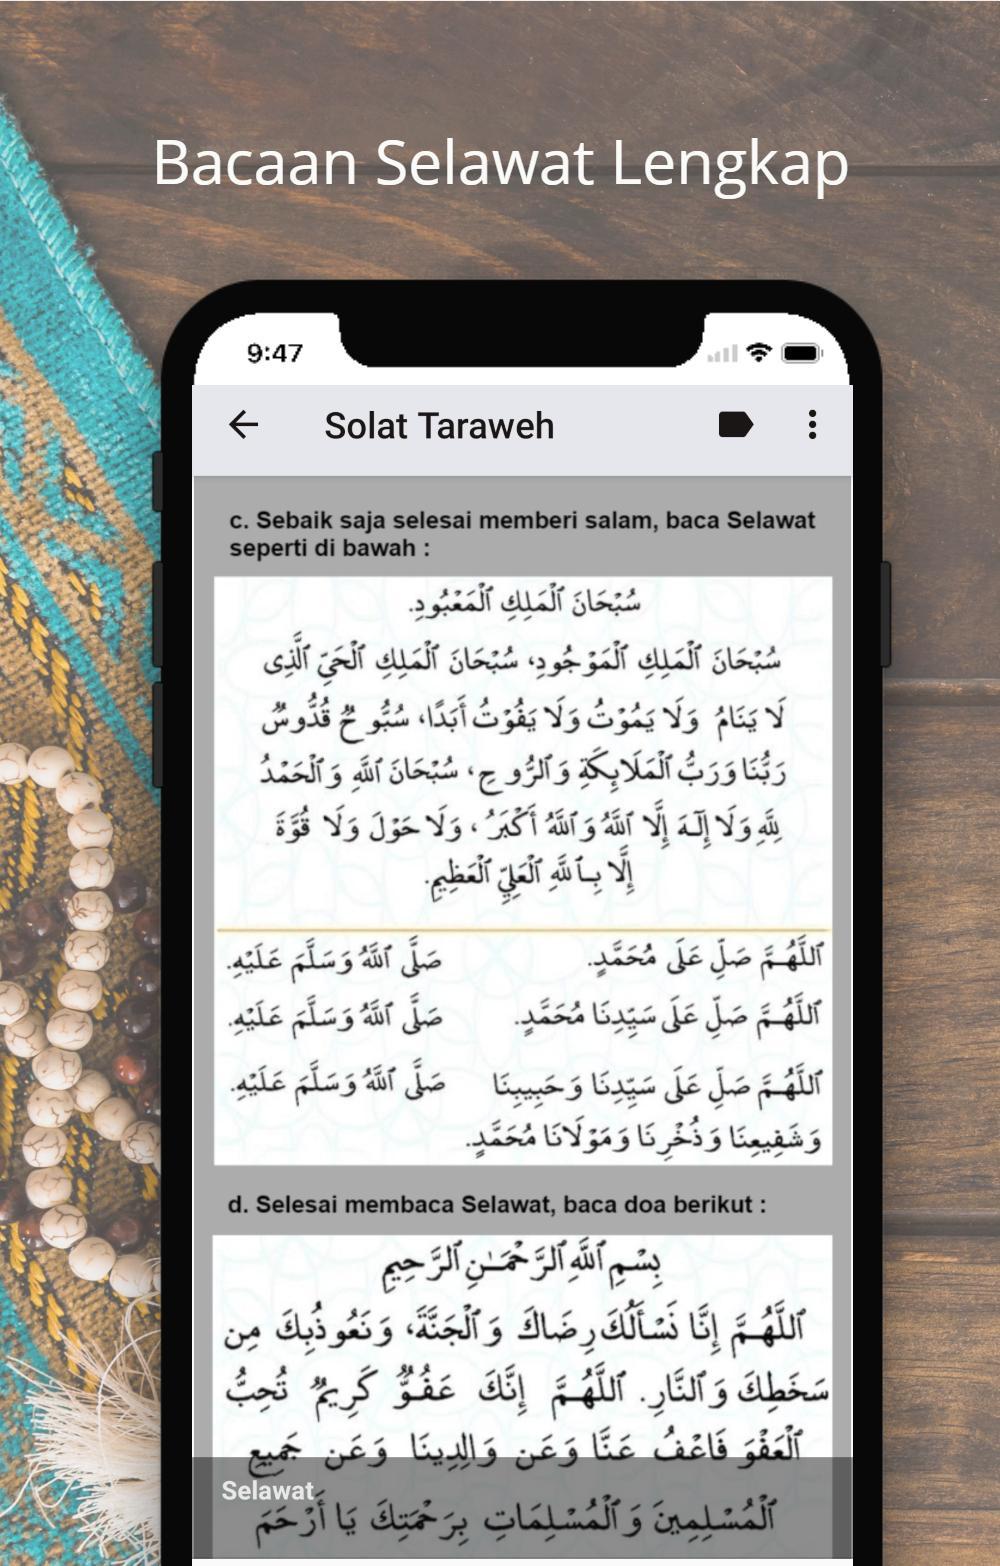 Bacaan Selawat Lengkap
9:47
Solat Taraweh
c. Sebaik saja selesai memberi salam, baca Selawat
seperti di bawah :
سُبْحَانَ ٱلْمَلِكِ ٱلْمَعْبُودِ.
سُبْحَانَ ٱلْمَلِكِ ٱلْمَوْجُودِ، سُبْحَانَ ٱلْمَلِكِ ٱلْحَيِّ ٱلَّذِى
لَا يَنَامُ وَلَا يَمُوْتُ وَلَا يَفُوْتُ أَبَدًا، سُبُّوحٌ قُدُّوسٌ
رَبُّنَا وَرَبُّ ٱلْمَلَايِكَةِ وَٱلرُّوحِ، سُبْحَانَ ٱللَّهِ وَٱلْحَمْدُ
لِلَّهِ وَلَا إِلَٰهَ إِلَّا ٱللَّهُ وَٱللَّهُ أَكْبَرُ، وَلَا حَوْلَ وَلَا قُوَّةَ
إِلَّا بِٱللَّهِ ٱلْعَلِيِّ ٱلْعَظِيمِ.
ٱللَّهُمَّ صَلِّ عَلَى مُحَمَّدٍ. صَلَّى ٱللَّهُ وَسَلَّمَ عَلَيْهِ.
ٱللَّهُمَّ صَلِّ عَلَى سَيِّدِنَا مُحَمَّدٍ. صَلَّى ٱللَّهُ وَسَلَّمَ عَلَيْهِ.
ٱللَّهُمَّ صَلِّ عَلَى سَيِّدِنَا وَحَبِيبِنَا صَلَّى ٱللَّهُ وَسَلَّمَ عَلَيْهِ.
وَشَفِيعِنَا وَذُخْرِنَا وَمَوْلَانَا مُحَمَّدٍ.
d. Selesai membaca Selawat, baca doa berikut :
بِسْمِ ٱللَّهِ ٱلرَّحْمَـٰنِ ٱلرَّحِيمِ
ٱللَّهُمَّ إِنَّا نَسْأَلُكَ رِضَاكَ وَٱلْجَنَّةَ، وَنَعُوذُبِكَ مِن
سَخَطِكَ وَٱلنَّارِ. ٱللَّهُمَّ إِنَّكَ عَفُوٌّ كَرِيمٌ تُحِبُّ
ٱلْعَفْوَ فَاعْفُ عَنَّا وَعَن وَالِدِينَا وَعَن جَمِيعِ
Selawat
ٱلْمُسْلِمِينَ وَٱلْمُسْلِمَاتِ بِرَحْمَتِكَ يَا أَرْحَمَ